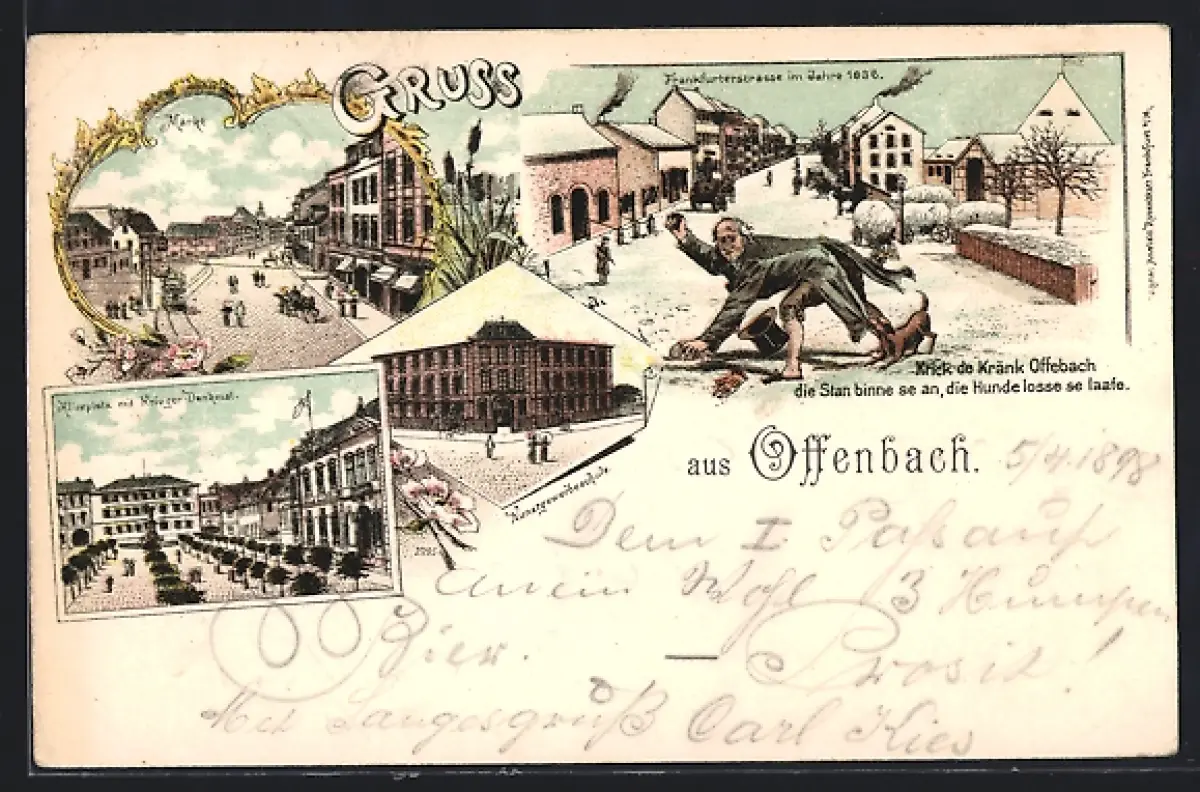 GRUSS
Markt
Frankfurterstrasse im Jahre 1836.
Krick de Kränk Offebach
die Stan binne se an, die Hunde losse se laafe.
Kunstgewerbeschule
Krieger-Denkmal.
aus Offenbach. 5/4. 1898
Dem I Paß auf
Wohl 3
Bier. — Prosit!
Mit Sangesgruß Carl Kies